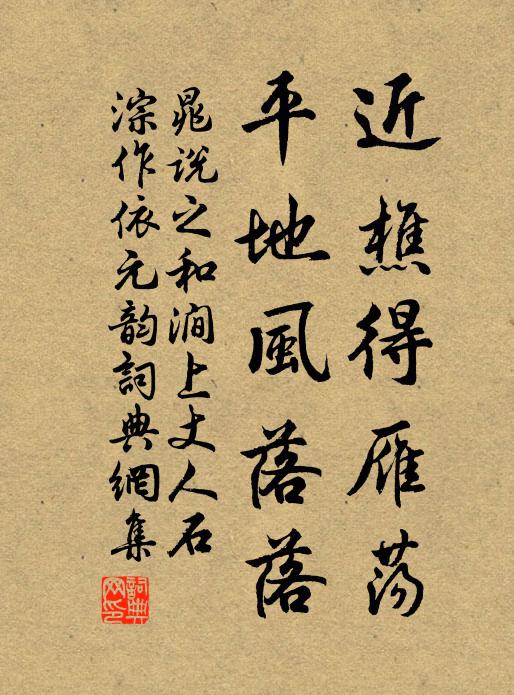 近樵得雁荡
平地風落落
晁说之和澗上丈人石
淙作依元韵詞典網集
詞典
网印